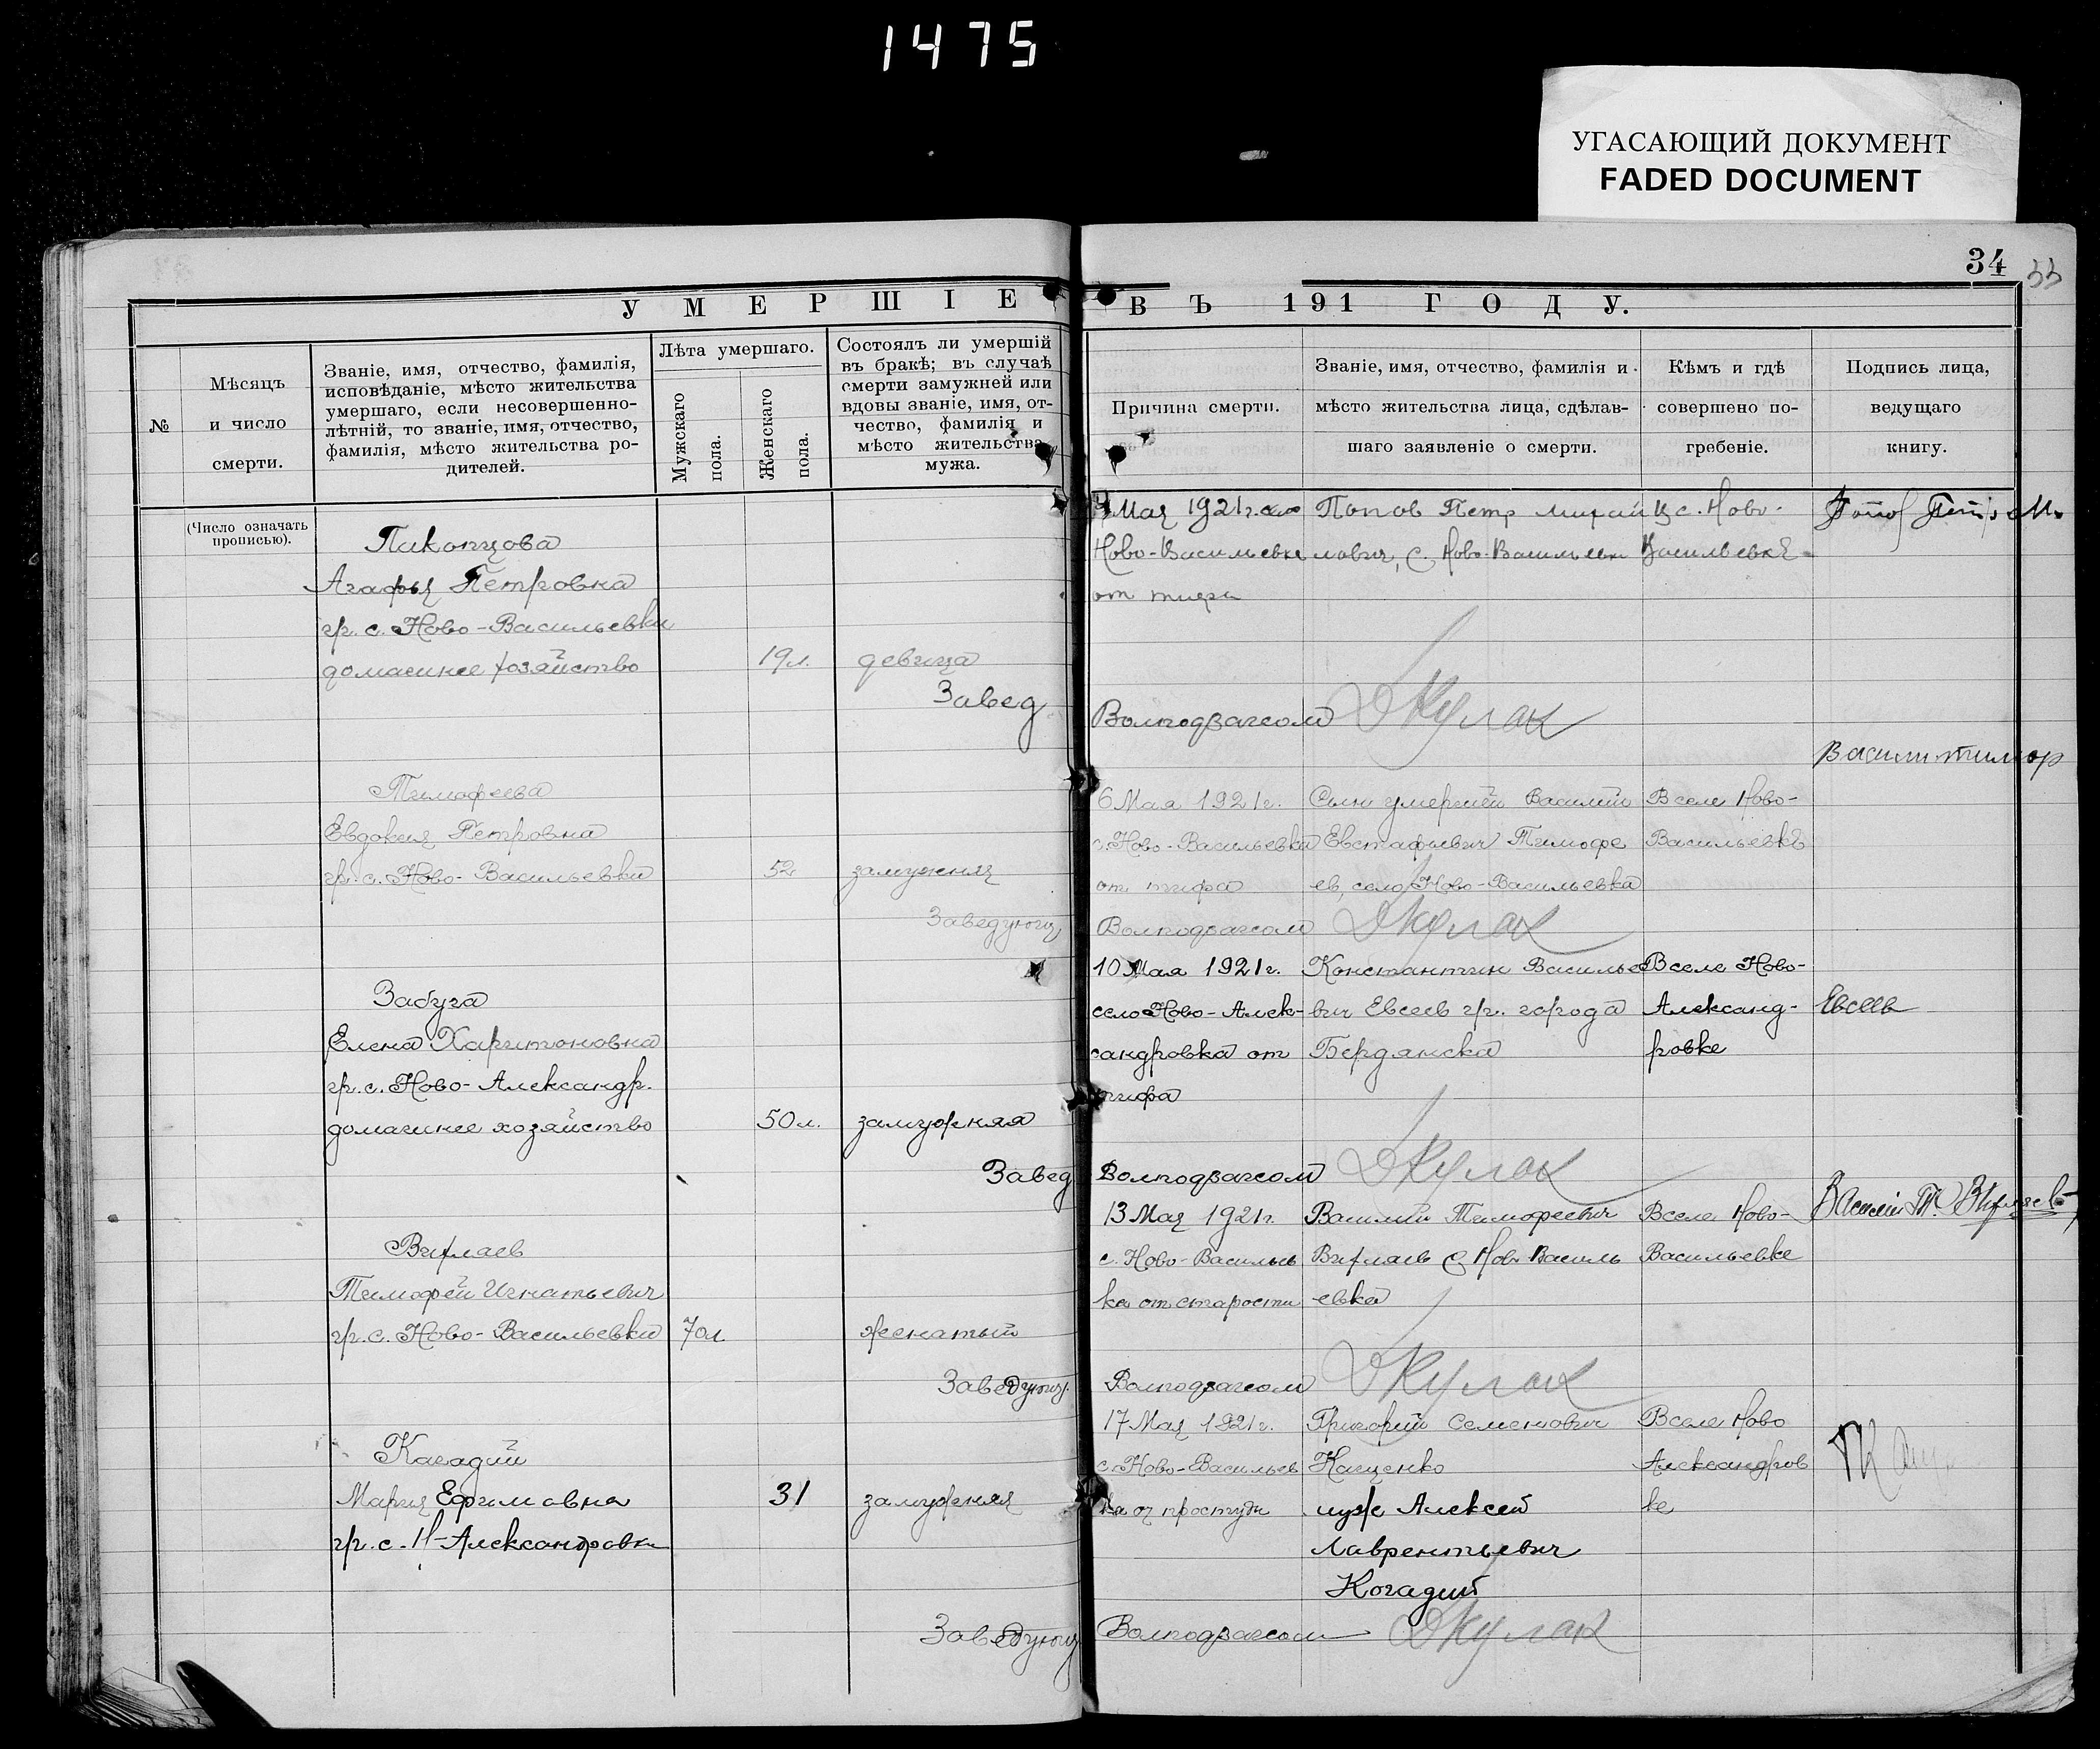 1475
УГАСАЮЩИЙ ДОКУМЕНТ
FADED DOCUMENT
34
33
УМЕРШІЕ ВЪ 191 ГОДУ.
№
Мѣсяцъ
и число
смерти.
Званіе, имя, отчество, фамилія,
исповѣданіе, мѣсто жительства
умершаго, если несовершенно-
лѣтній, то званіе, имя, отчество,
фамилія, мѣсто жительства ро-
дителей.
Лѣта умершаго.
Мужскаго
пола.
Женскаго
пола.
Состоялъ ли умершій
въ бракѣ; въ случаѣ
смерти замужней или
вдовы званіе, имя, от-
чество, фамилія и
мѣсто жительства
мужа.
Причина смерти.
Званіе, имя, отчество, фамилія и
мѣсто жительства лица, сдѣлав-
шаго заявленіе о смерти.
Кѣмъ и гдѣ
совершено по-
гребеніе.
Подпись лица,
ведущаго
книгу.
(Число означать
прописью).
Агафья Петровна
гр. с. Ново-Васильевки
домашнее хозяйство
19л.
девица
Мая 1921г.
Ново-Васильевке
от
Попов Петр Михай
лович, с. Ново-Васильевк
с. Ново-
Васильевкѣ
Завед
Волподзагсом ДКулак
Тимофеева
Евдокия Петровна
гр. с. Ново-Васильевки
52
замужняя
6 Мая 1921г.
с. Ново-Васильевка
от тифа
Сын умершей Василий
Евстафиевич Тимофе
ев, село Ново-Васильевка
В селе Ново-
Васильевкѣ
Заведующ
Волподзагсом ДКулак
Забуга
Елена Харитоновна
гр. с. Ново-Александр.
домашнее хозяйство
50 л.
замужняя
10 Мая 1921г.
село Ново-Алек-
сандровка от
тифа
Константин Василье
вич Евсеев гр. города
Бердянска
В селе Ново-
Александ-
ровке
Евсеев
Завед
Волподзагсом ДКулак
Тимофей Игнатьевич
гр. с. Ново-Васильевки
70л.
женатый
13 Мая 1921г.
с. Ново-Васильев
ка от старости
Василий Тимофеевич
с. Ново Василь
евка
В селе Ново-
Васильевке
Заведующ.
Волподзагсом ДКулак
Кагадий
Мария Ефимовна
гр. с. Н-Александровки
31
замужняя
17 Мая 1921г.
с. Ново-Васильев
ка от простуды
Григорий Семенович
Кащенко
муж Алексей
Лаврентьевич
Когадий
В селе Ново
Александров
ке
Заведующ
Волподзагсом ДКулак